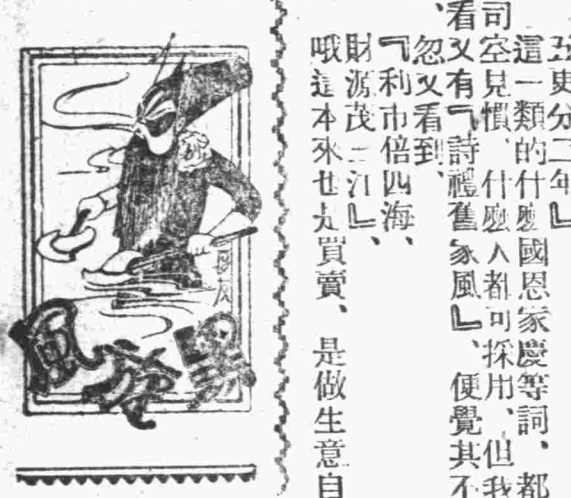 五更分二年』
這一類的什麽國恩家慶等詞、都
司空見慣、什麽人都可採用、但我
看又有『詩禮舊家風』、便覺其不
、忽又看到、
『利市倍四海、
財源茂三江』、
哦這本來也是買賣、是做生意自
黑旋風